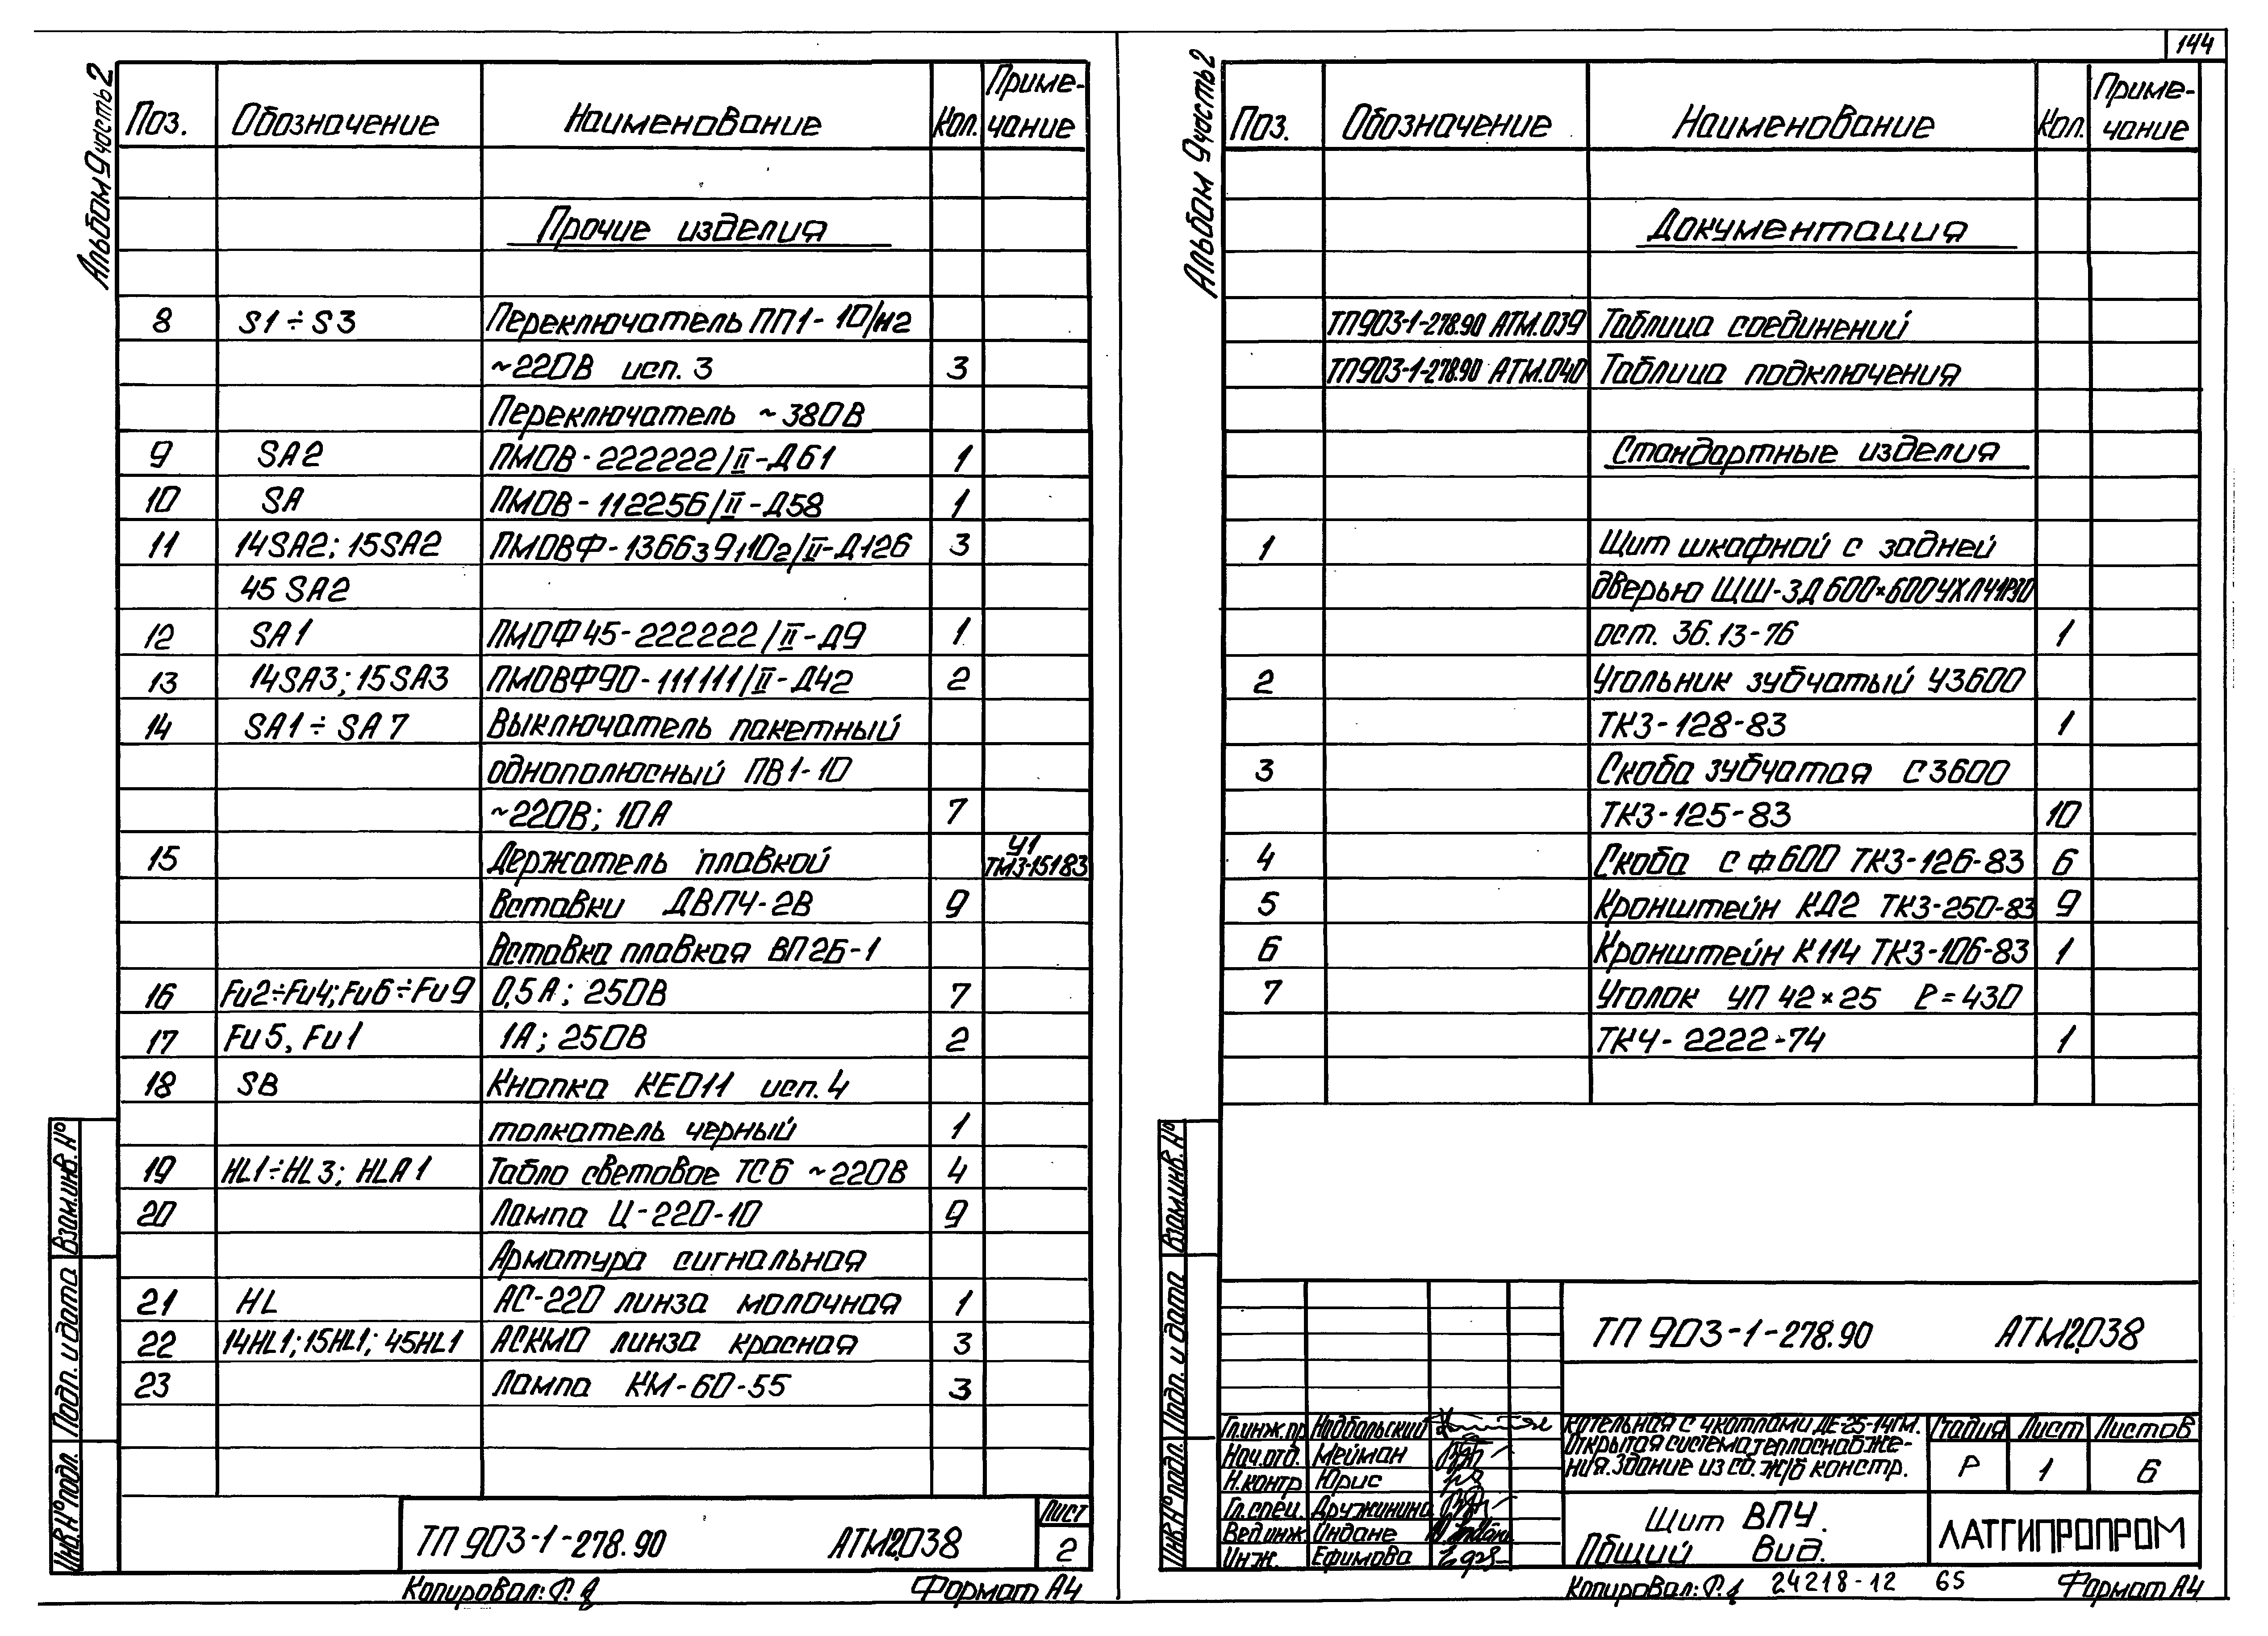 144
Альбом 9 часть 2
Поз. Обозначение Наименование Кол. Приме-
чание
Прочие изделия
8 S1÷S3 Переключатель ПП1-10/н2
~220В исп. 3 3
Переключатель ~380В
9 SA2 ПМОВ-222222/II-Д61 1
10 SA ПМОВ-112256/II-Д58 1
11 14SA2; 15SA2 ПМОВФ-1366391102/II-Д126 3
45SA2
12 SA1 ПМОФ45-222222/II-Д9 1
13 14SA3; 15SA3 ПМОВФ90-111111/II-Д42 2
14 SA1÷SA7 Выключатель пакетный
однополюсный ПВ1-10
~220В; 10А 7
15 Держатель плавкой У1
ТМ3-15183
вставки ДВП4-2В 9
Вставка плавкая ВП2Б-1
16 Fu2÷Fu4; Fu6÷Fu9 0,5А; 250В 7
17 Fu5, Fu1 1А; 250В 2
18 SB Кнопка КЕ011 исп. 4
толкатель черный 1
19 HL1÷HL3; HLA1 Табло световое ТСБ ~220В 4
20 Лампа Ц-220-10 9
Арматура сигнальная
21 HL АС-220 линза молочная 1
22 14HL1; 15HL1; 45HL1 АСКМО линза красная 3
23 Лампа КМ-60-55 3
Взам.инв.№
Подп. и дата
Инв.№ подл.
ТП 903-1-278.90 АТМ2.038
Лист
2
Копировал: Ф.
Формат А4
Альбом 9 часть 2
Поз. Обозначение Наименование Кол. Приме-
чание
Документация
ТП903-1-278.90 АТМ.039 Таблица соединений
ТП903-1-278.90 АТМ.040 Таблица подключения
Стандартные изделия
1 Щит шкафной с задней
дверью ЩШ-ЗД 600×600УХЛ41Р30
ост. 36.13-76 1
2 Угольник зубчатый УЗ600
ТК3-128-83 1
3 Скоба зубчатая СЗ600
ТК3-125-83 10
4 Скоба СФ600 ТК3-126-83 6
5 Кронштейн КД2 ТК3-250-83 9
6 Кронштейн К114 ТК3-106-83 1
7 Уголок УП 42×25 ℓ=430
ТК4-2222-74 1
Взам.инв.№
Подп. и дата
Инв.№ подл.
ТП 903-1-278.90 АТМ2.038
Гл.инж.пр Надбольский
Нач.отд. Мейман
Н.контр Юрис
Гл.спец. Дружинина
Вед.инж Индане
Инж. Ефимова
Котельная с 4 котлами ДЕ-25-14ГМ.
Открытая система теплоснабже-
ния. Здание из сб. ж/б констр.
Стадия Лист Листов
Р 1 6
Щит ВПУ.
Общий вид.
ЛАТГИПРОПРОМ
Копировал: Ф.
24218-12 65
Формат А4